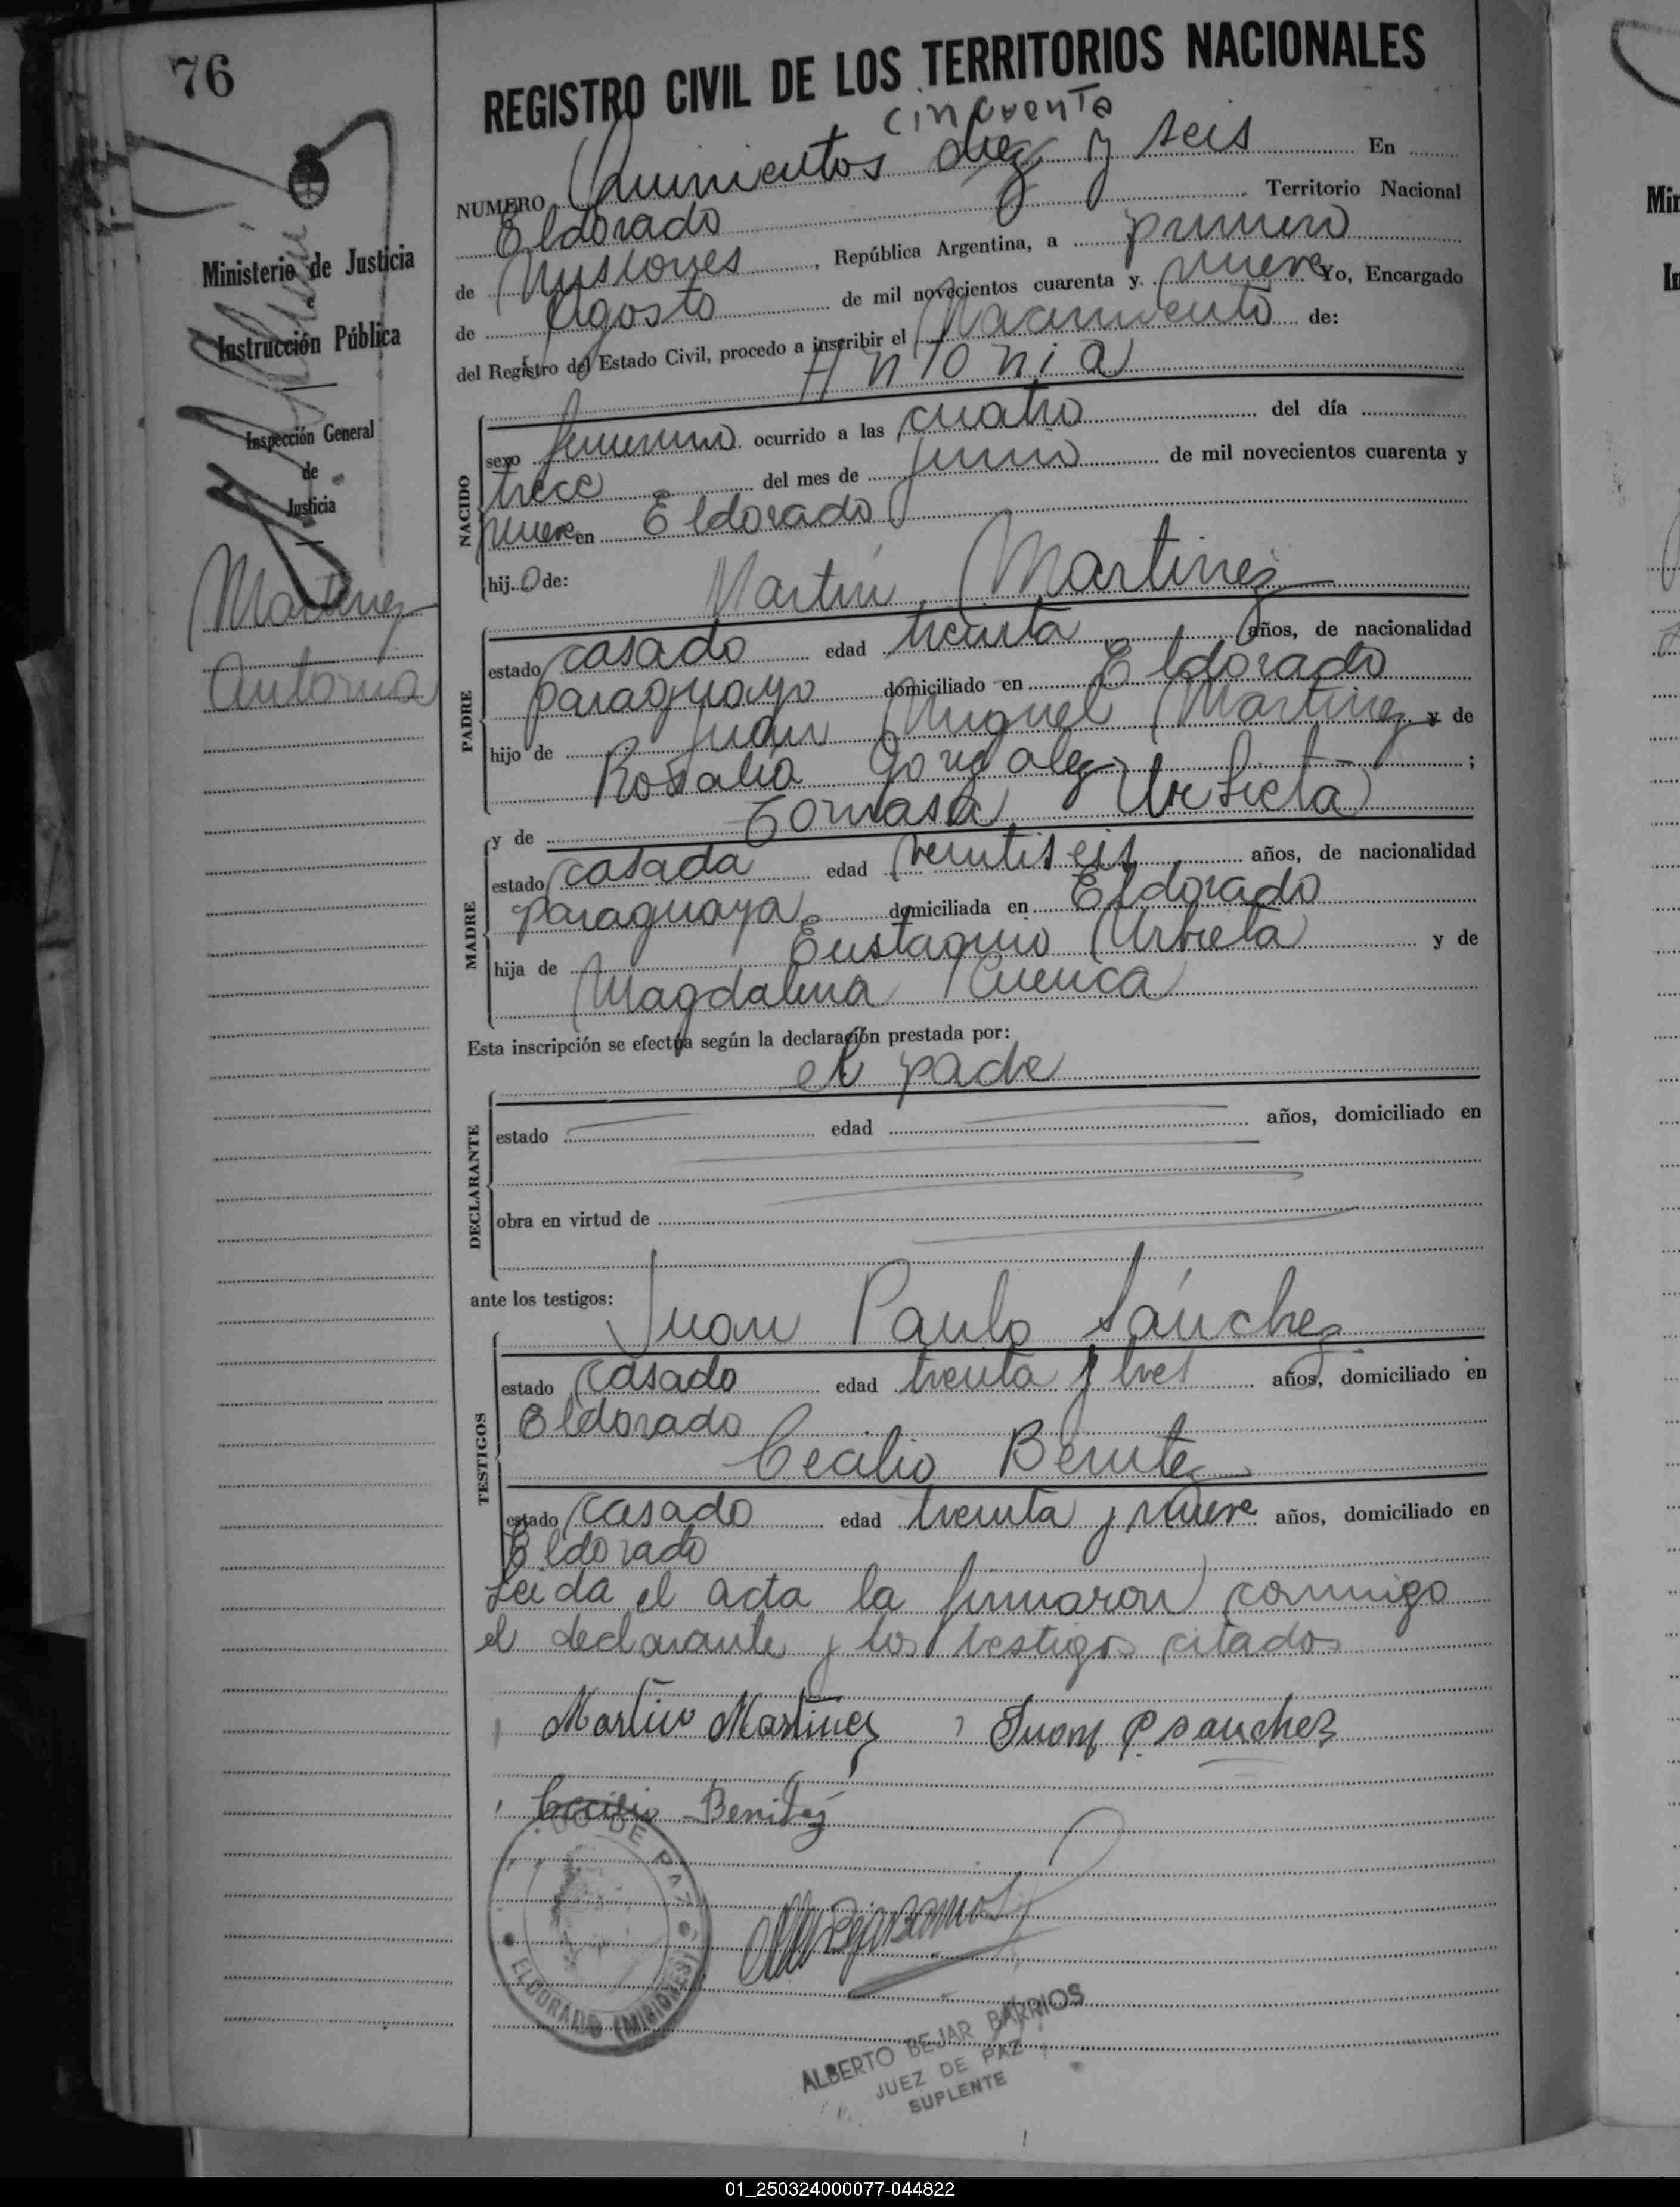 76
REGISTRO CIVIL DE LOS TERRITORIOS NACIONALES
cincuenta
NUMERO Quinientos diez y seis En
Eldorado Territorio Nacional
de Misiones, República Argentina, a primero
de Agosto de mil novecientos cuarenta y nueve Yo, Encargado
del Registro del Estado Civil, procedo a inscribir el Nacimiento de:
Antonia
Ministerio de Justicia
e
Instrucción Pública
Inspección General
de
Justicia
Martinez
Antonia
NACIDO
sexo femenino ocurrido a las cuatro del día
trece del mes de junio de mil novecientos cuarenta y
nueve en Eldorado
hij.o de: Martín Martinez
PADRE
estado casado edad treinta años, de nacionalidad
paraguayo domiciliado en Eldorado
hijo de Juan Miguel Martinez y de
Rosalia Gonzalez ;
y de Tomasa Urbieta
MADRE
estado casada edad veintiseis años, de nacionalidad
paraguaya domiciliada en Eldorado
hija de Eustaquio Urbieta y de
Magdalena Cuenca
Esta inscripción se efectúa según la declaración prestada por:
el padre
DECLARANTE
estado edad años, domiciliado en
obra en virtud de
ante los testigos:
Juan Paulo Sánchez
TESTIGOS
estado casado edad treinta y tres años, domiciliado en
Eldorado
Cecilio Benitez
estado casado edad treinta y nueve años, domiciliado en
Eldorado
Leida el acta la firmaron conmigo
el declarante y los testigos citados
Martin Martinez Juan P Sanchez
Cecilio Benitez
DE PAZ
ELDORADO (MISIONES)
ALBERTO BEJAR BARRIOS
JUEZ DE PAZ
SUPLENTE
Min
In
01_250324000077-044822